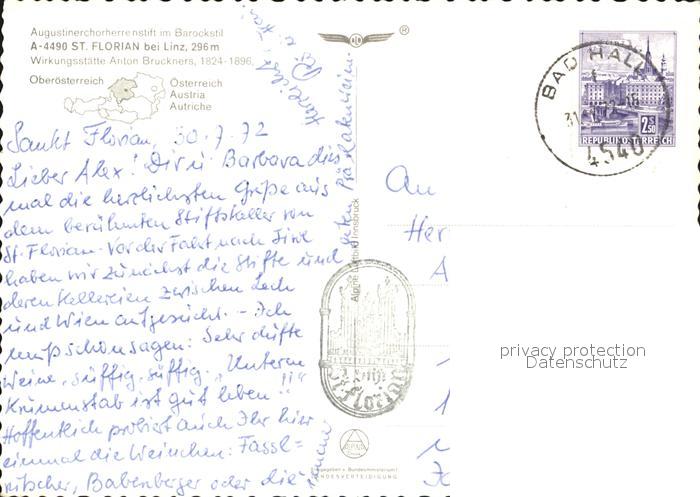 Augustinerchorherrenstift im Barockstil
A-4490 ST. FLORIAN bei Linz, 296 m
Wirkungsstätte Anton Bruckners, 1824-1896,
Oberösterreich
Österreich
Austria
Autriche
Sankt Florian, 30.7.72
Lieber Alex! Dir u Barbara dies
mal die herzlichsten Grüße aus
dem berühmten Stiftskeller von
St. Florian. Vor der Fahrt nach Tirol
haben wir zunächst die Stifte und
deren Kellereien zwischen Lech
und Wien aufgesucht. - Ich
muß schon sagen: Sehr dufte
Weine, süffig, süffig. „Unterm
Krummstab ist gut leben"!!
Hoffentlich probiert auch Ihr hier
einmal die Weinchen: Fassl=
rutscher, Babenberger oder die
guten Prälatenweine
Herzlichst
Alpine Luftbild Innsbruck
St. Florian
BAD HALL
4540
2S50
REPUBLIK ÖSTERREICH
An
Her
privacy protection
Datenschutz
BUNDESMINISTERIUM F
LANDESVERTEIDIGUNG